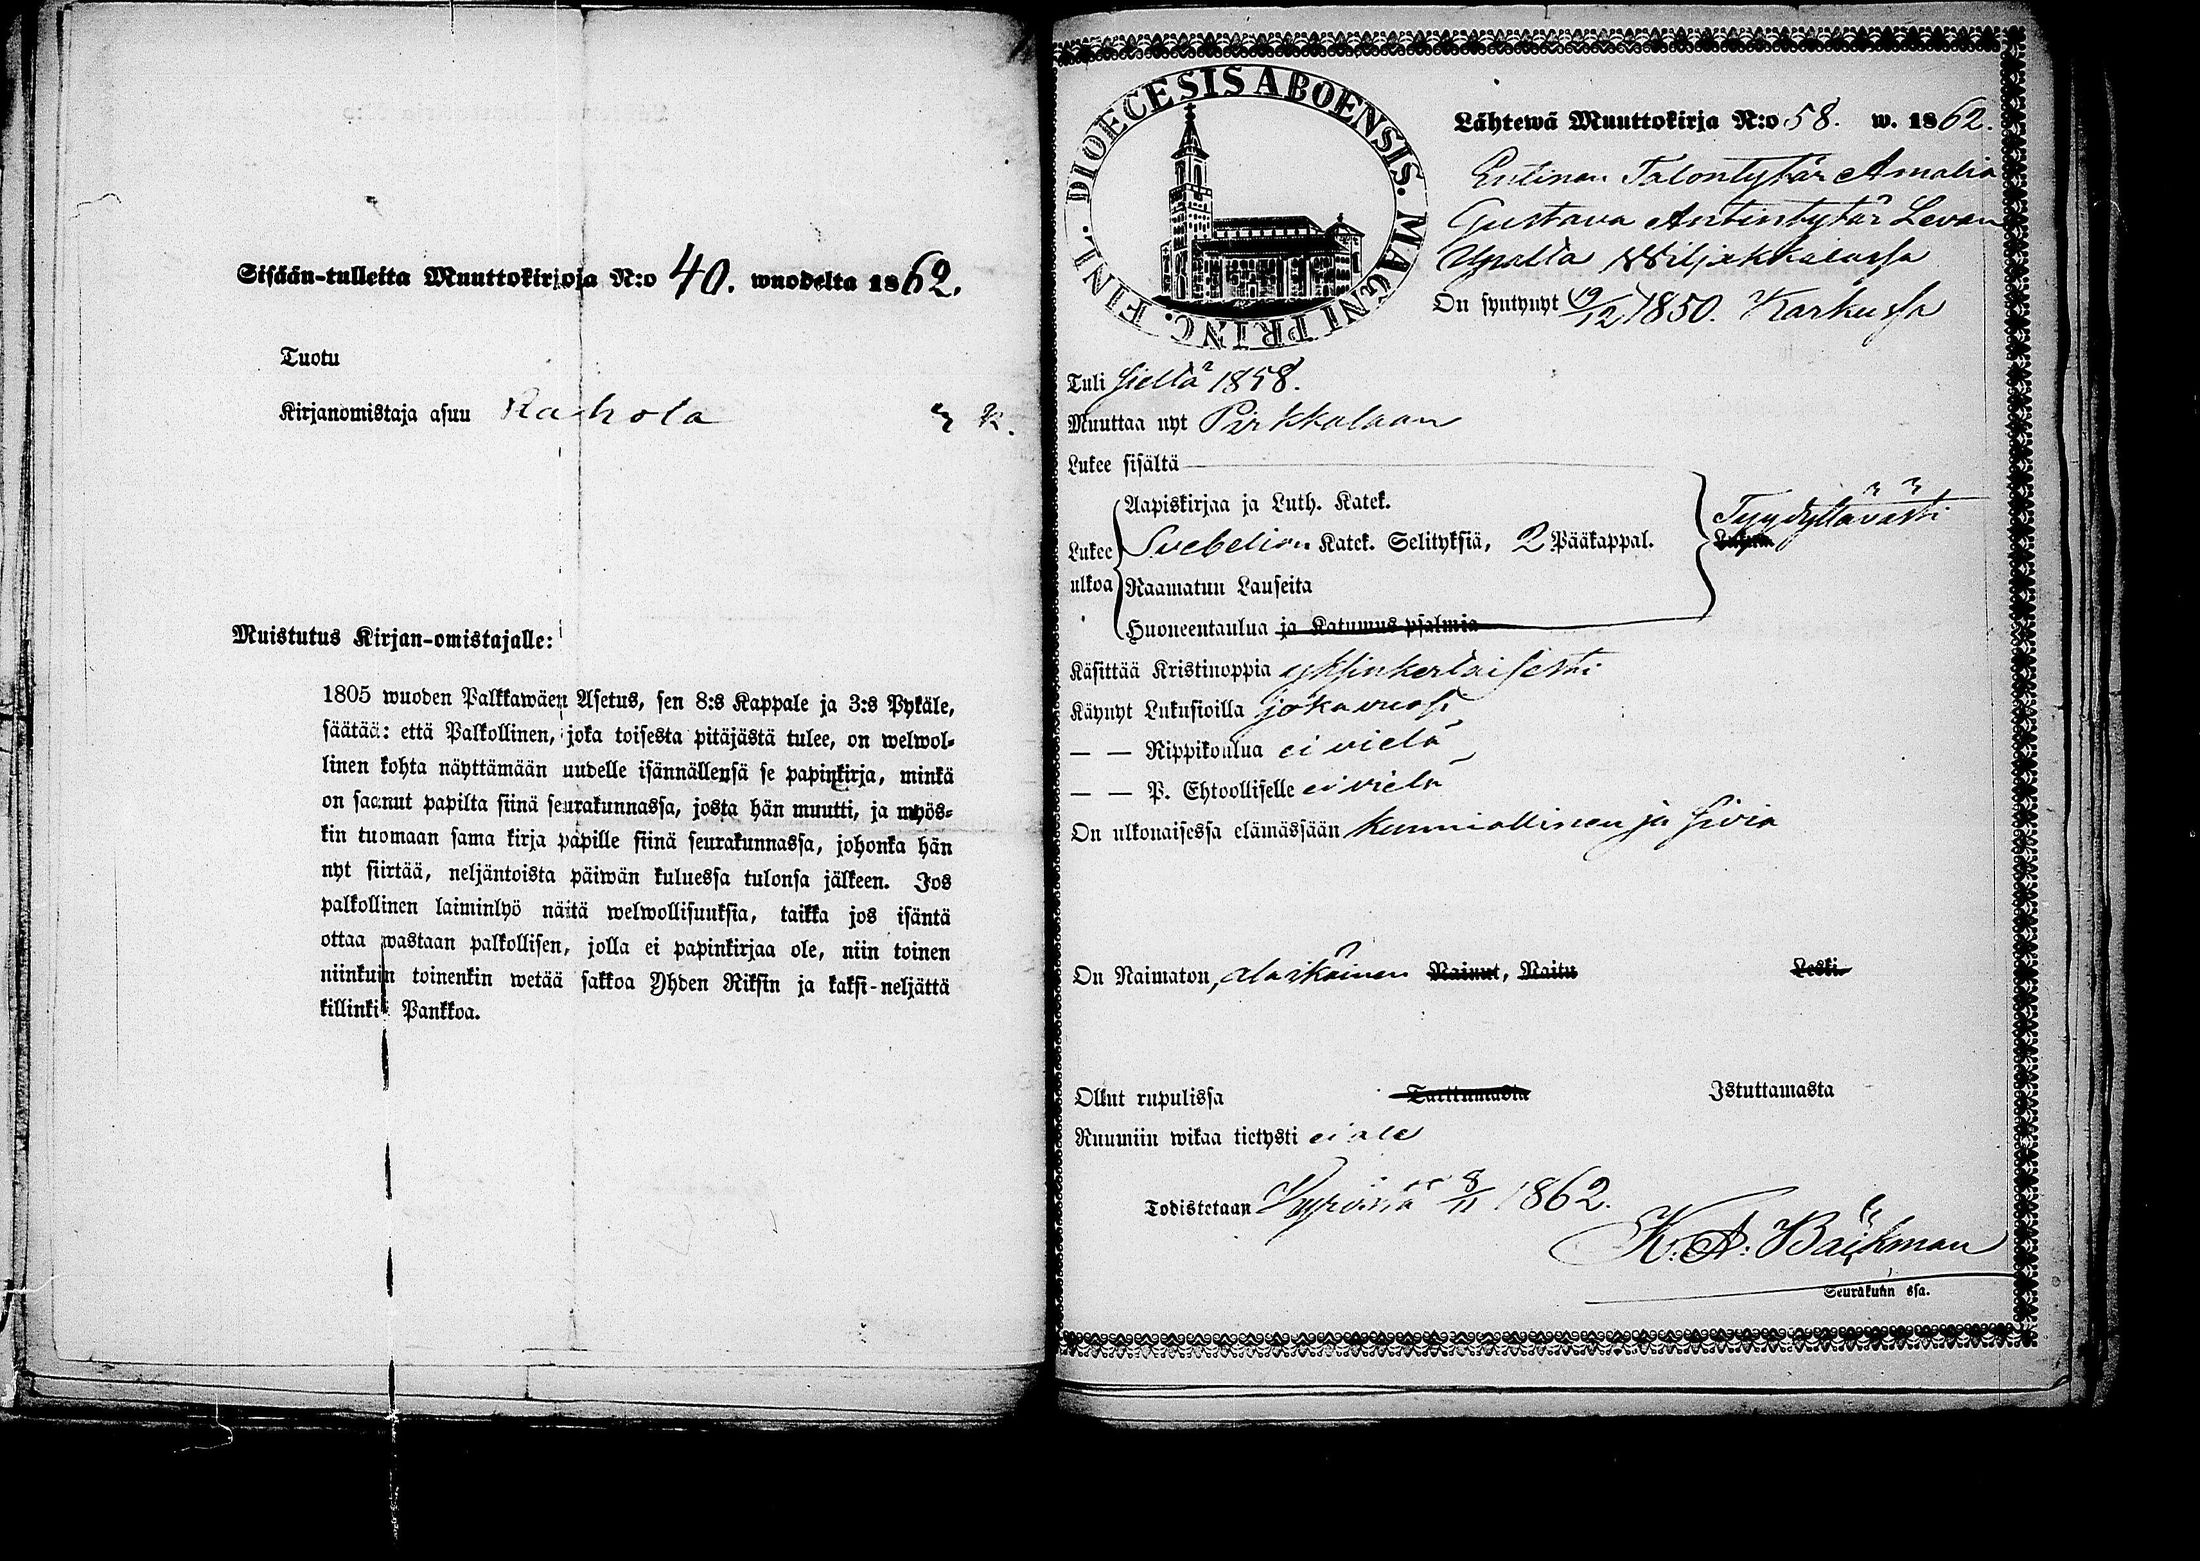 Sisään-tulleita Muuttokirjoja N:o 40. wuodelta 1862.
Tuotu
Kirjanomistaja asuu Rahola
Muistutus Kirjan-omistajalle:
1805 wuoden Palkkawäen Asetus, sen 8:s Kappale ja 3:s Pykäle,
säätää: että Palkollinen, joka toisesta pitäjästä tulee, on welwol-
linen kohta näyttämään uudelle isännällensä se papinkirja, minkä
on saanut papilta siinä seurakunnassa, josta hän muutti, ja myös-
kin tuomaan sama kirja papille siinä seurakunnassa, johonka hän
nyt siirtää, neljäntoista päiwän kuluessa tulonsa jälkeen. Jos
palkollinen laiminlyö näitä welwollisuuksia, taikka jos isäntä
ottaa wastaan palkollisen, jolla ei papinkirjaa ole, niin toinen
niinkuin toinenkin wetää sakkoa Yhden Riksin ja kaksi-neljättä
killinki Pankkoa.
FINL. DIOECESIS ABOENSIS. MAGNI PRINC.
Lähtewä Muuttokirja N:o 58. w. 1862.
Entinen Talontytär Amalia
Gustava Antintytär Levan
Wiljakkalassa
On syntynyt 9/12 1850. Karkussa
Tuli sieltä 1858.
Muuttaa nyt Pirkkalaan
Lukee sisältä
Aapiskirjaa ja Luth. Katek.
Lukee ulkoa Svebeliun Katek. Selityksiä, 2 Pääkappal.
Tyydyttävästi
Raamatun Lauseita
Huoneentaulua ja Katumus-psalmia
Käsittää Kristinoppia yksinkertaisesti
Käynyt Lukusioilla joka vuosi
— — Rippikoulua ei vielä
— — P. Ehtoolliselle ei vielä
On ulkonaisessa elämässään kunniallinen ja siviä
On Naimaton, alaikäinen Nainut, Naitu Leski.
Ollut rupulissa Tarttumasta Istuttamasta
Ruumiin wikaa tietysti ei ole
Todistetaan Kyrössä 8/11 1862.
K. A. Bäckman
Seurakunn ssa.